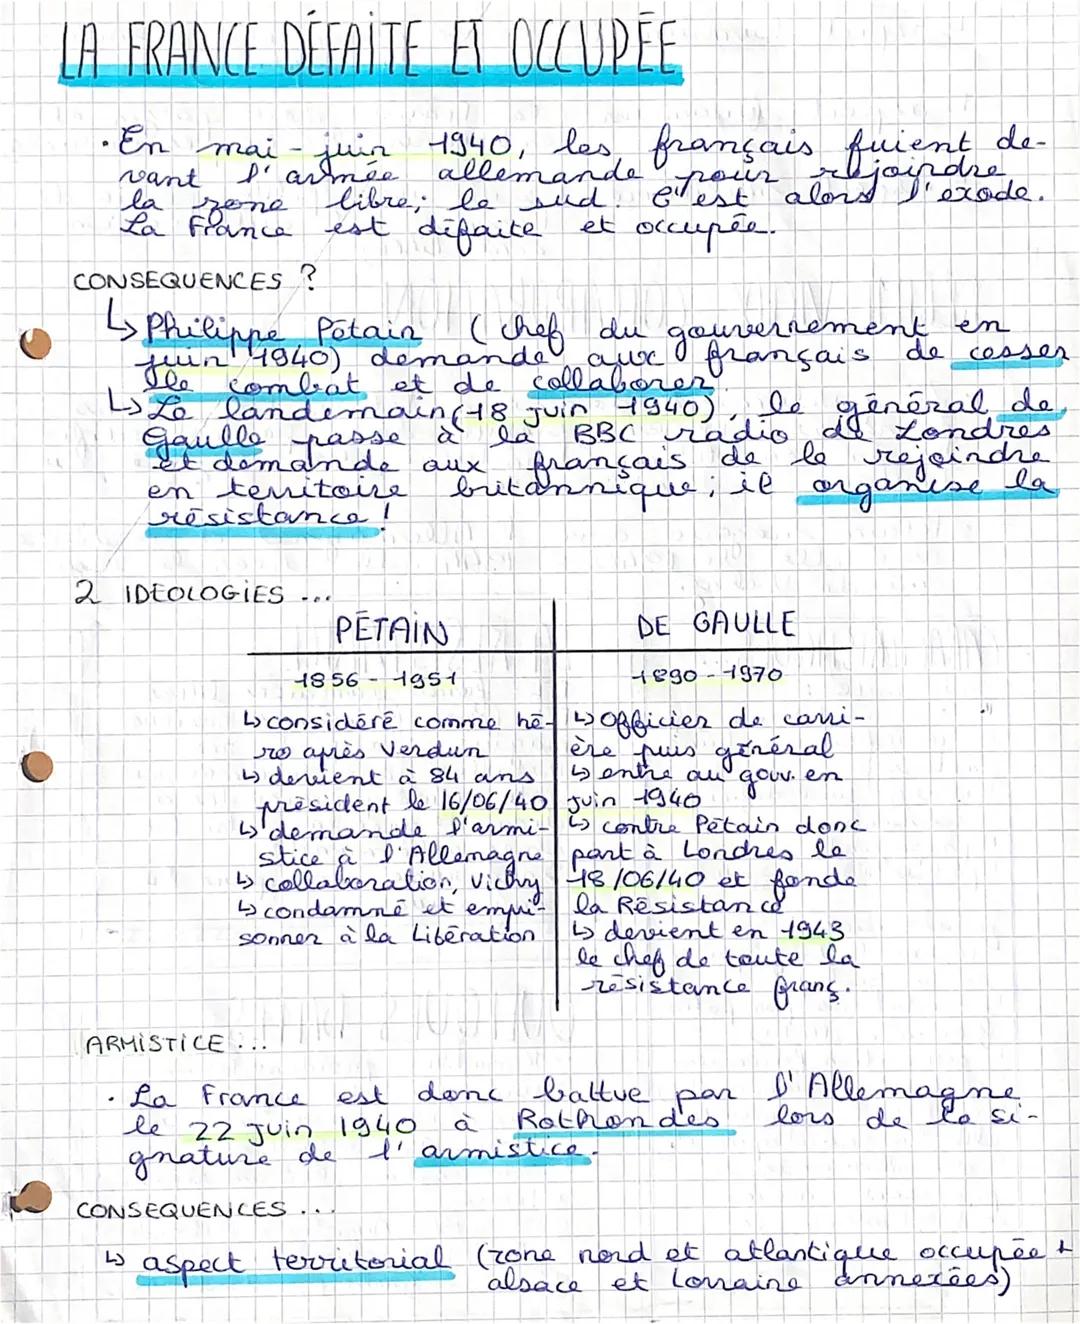 LA FRANCE DÉFAITE ET OCCUPÉE
· En mai - juin 1940, les français fuient de-
vant l'armée allemande pour rejoindre
la zone libre; le sud. C'est alors l'exode.
La France est défaite et occupée.
CONSEQUENCES ?
↳ Philippe Pétain (chef du gouvernement en
juin 1940) demande aux français de cesser
le combat et de collaborer.
↳ Le landemain (18 juin 1940), le général de
Gaulle passe à la BBC radio de Londres
et demande aux français de le rejoindre
en territoire britannique; il organise la
résistance !
2 IDEOLOGIES ...
PÉTAIN
1856 - 1951
↳ considéré comme hé-
ro après Verdun
↳ devient à 84 ans
président le 16/06/40
↳ demande l'armi-
stice à l'Allemagne
↳ collaboration, Vichy
↳ condamné et empri-
sonner à la Libération
DE GAULLE
1890 - 1970
↳ Officier de carri-
ère puis général
↳ entre au gouv. en
juin 1940
↳ contre Pétain donc
part à Londres le
18/06/40 et fonde
la Résistance
↳ devient en 1943
le chef de toute la
résistance franç.
ARMISTICE ...
· La France est donc battue par l'Allemagne
le 22 juin 1940 à Rothondes lors de la si-
gnature de l'armistice.
CONSEQUENCES ...
↳ aspect territorial (zone nord et atlantique occupée +
alsace et Lorraine annexées)